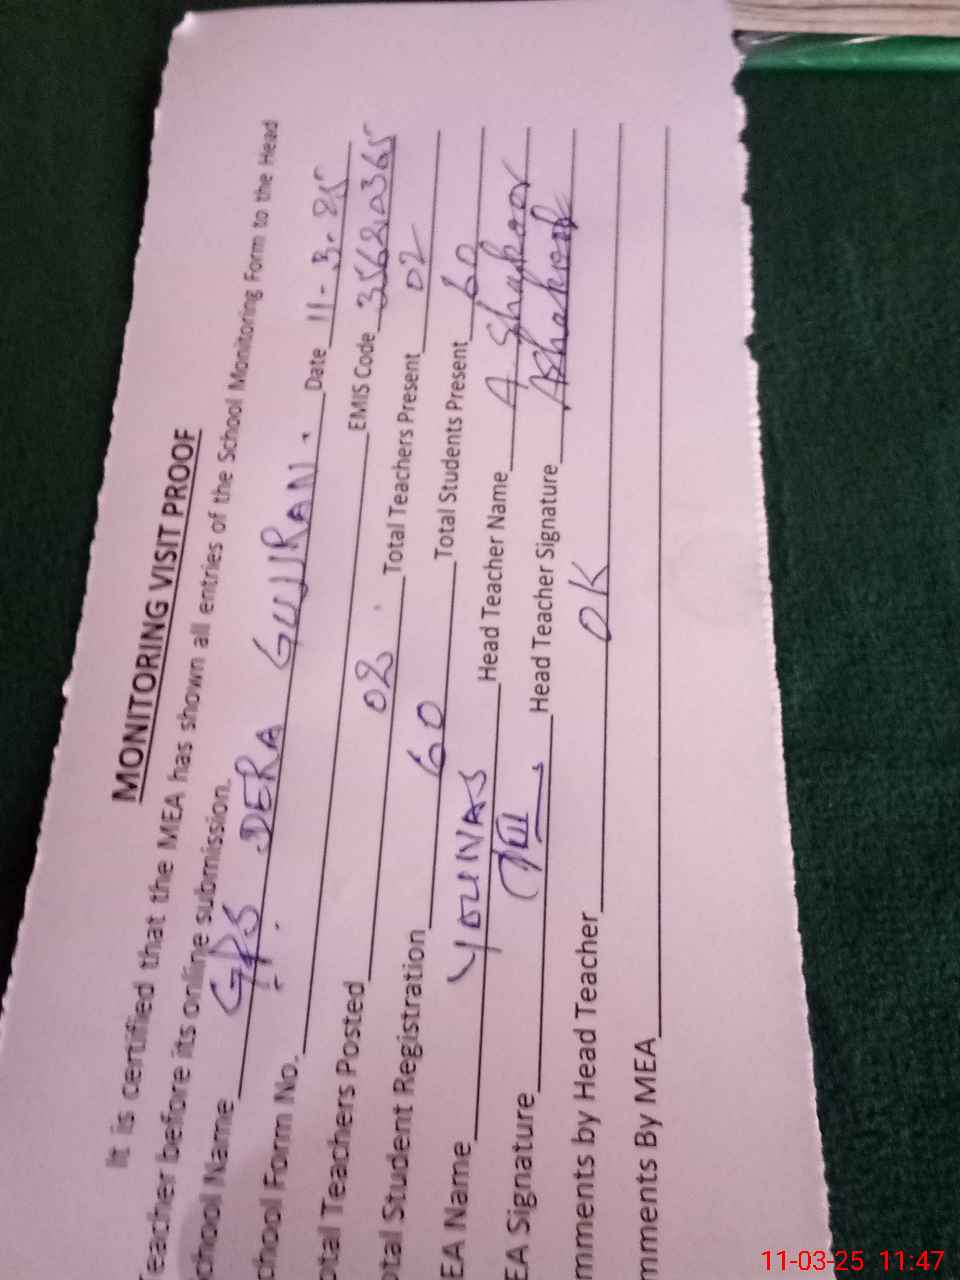 MONITORING VISIT PROOF
It is certified that the MEA has shown all entries of the School Monitoring Form to the Head
Teacher before its online submission.
chool Name GPS DERA GUJJRAN. Date 11-3-25
chool Form No. EMIS Code 35620365
otal Teachers Posted 02 Total Teachers Present 02
otal Student Registration 60 Total Students Present 60
EA Name YOUNAS Head Teacher Name A Shakoor
EA Signature Head Teacher Signature AShakoor
mments by Head Teacher OK
mments By MEA
11-03-25 11:47